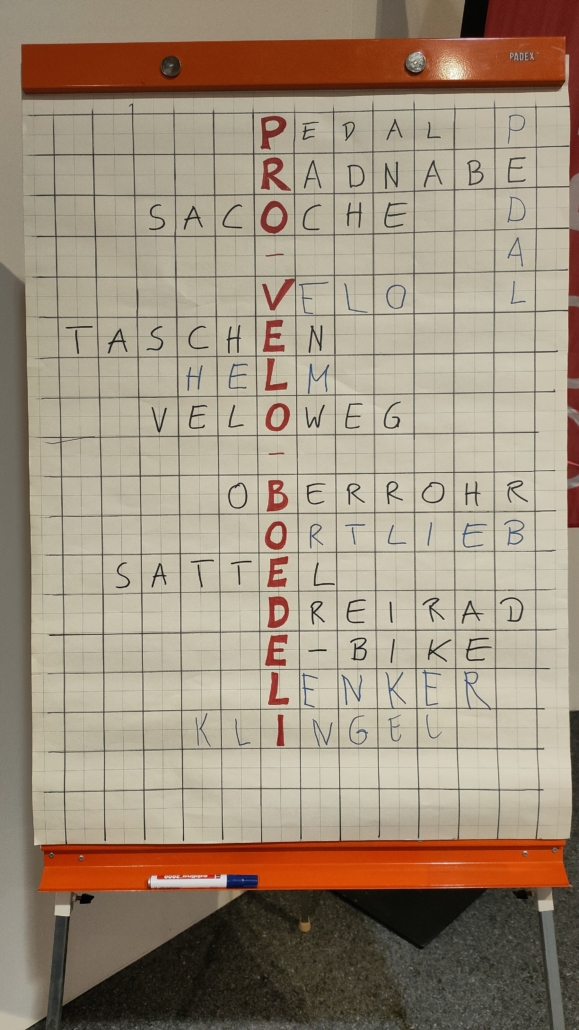 PADEX
PEDAL P
RADNABE
SACOCHE D
- A
VELO L
TASCHEN
HELM
VELOWEG
-
OBERROHR
ORTLIEB
SATTEL
DREIRAD
E-BIKE
LENKER
KLINGEL